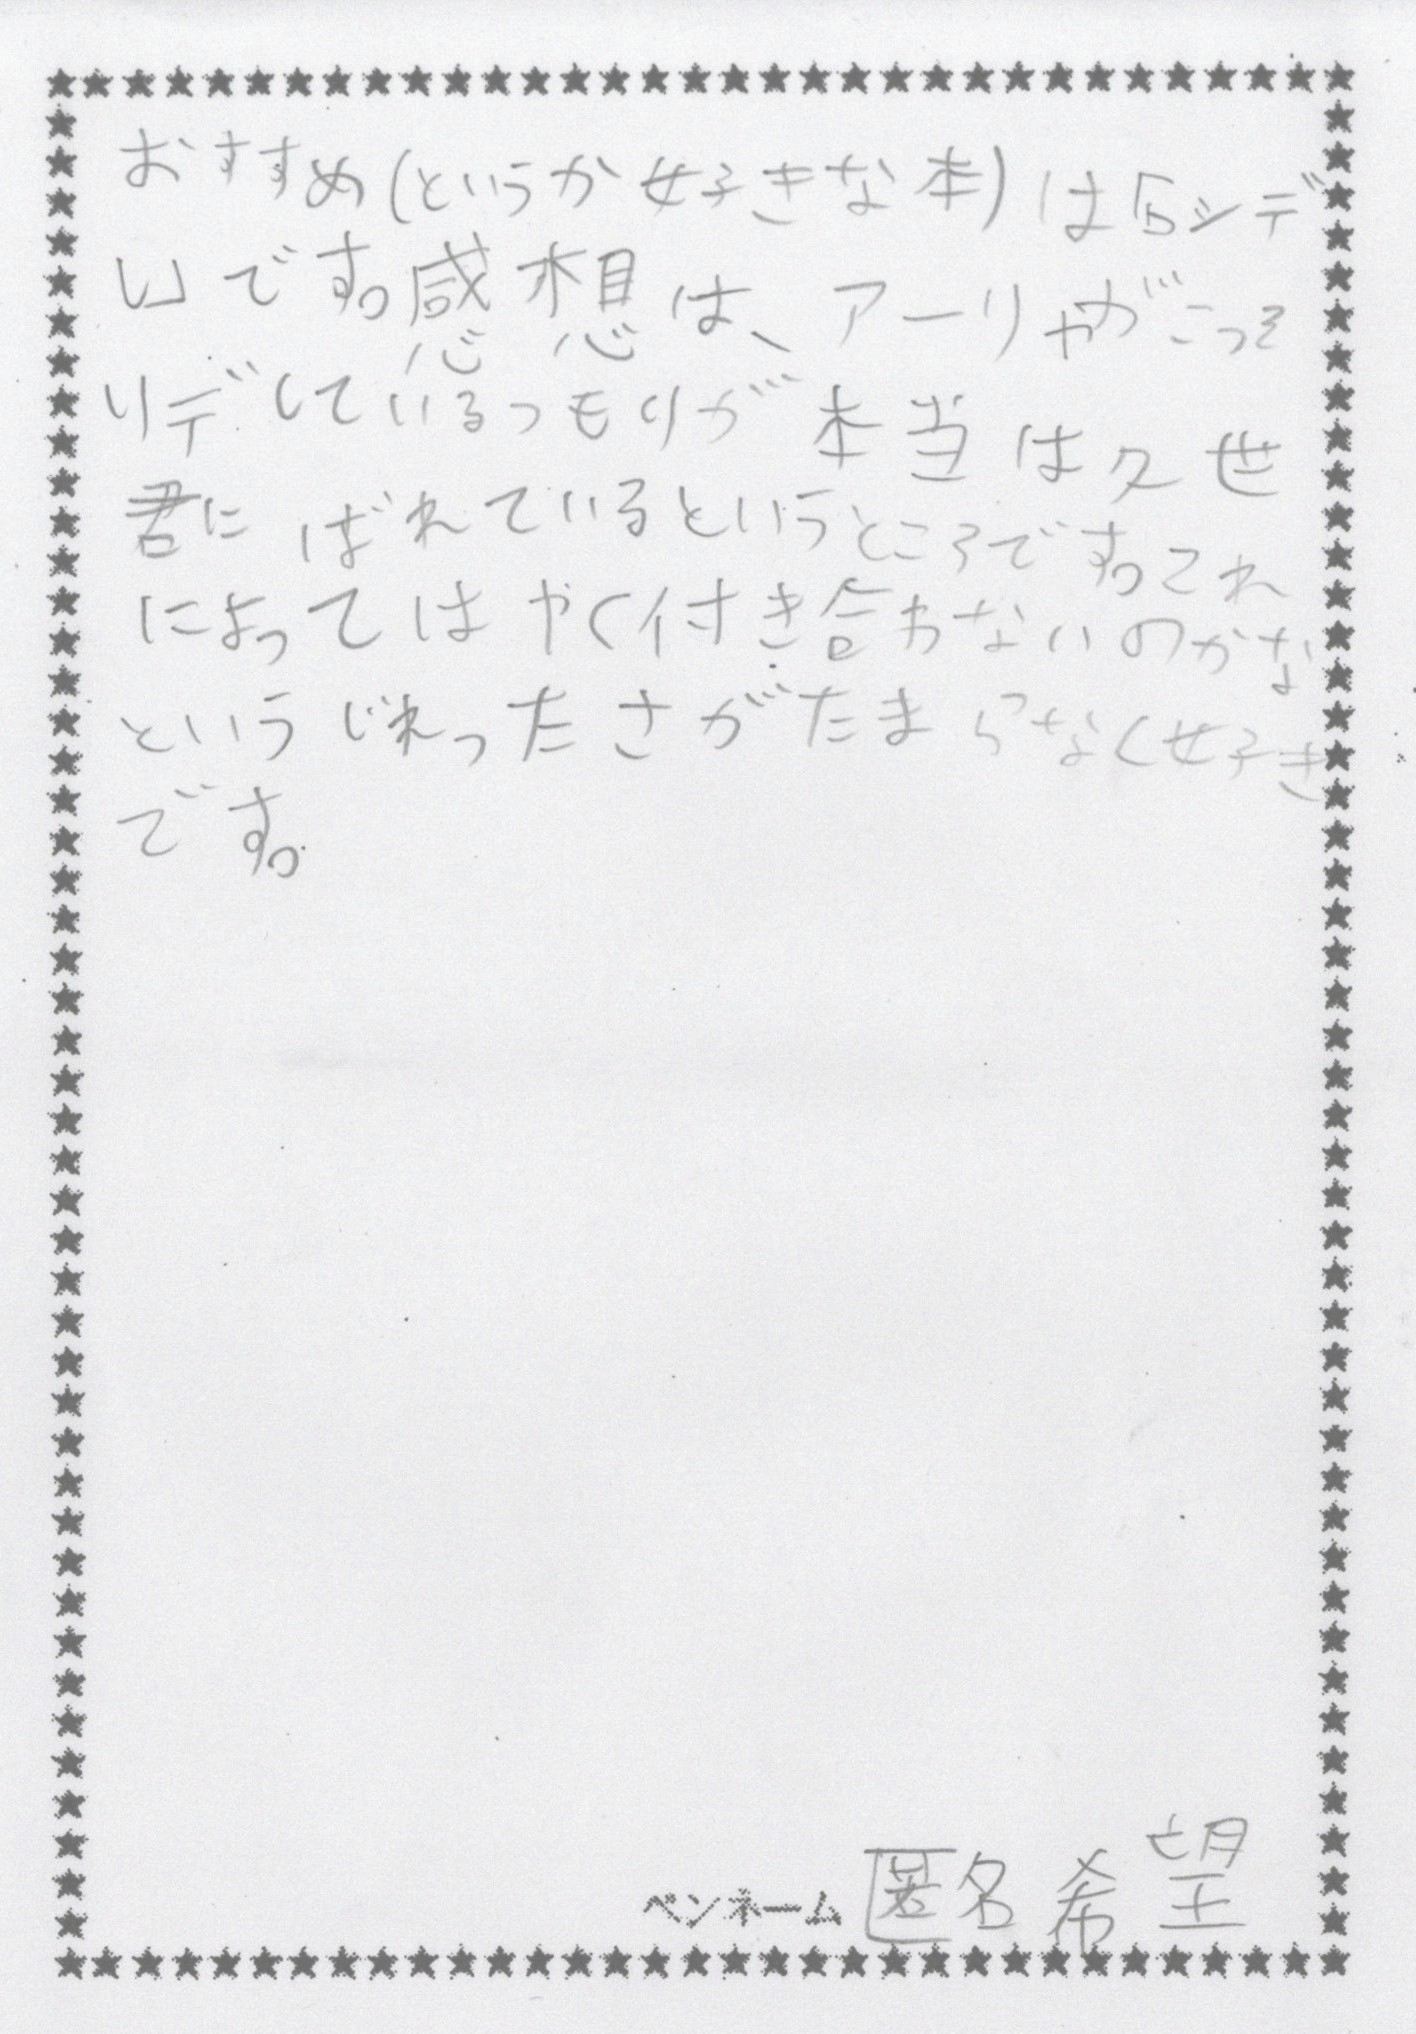 おすすめ(というか好きな本)は『ロシデ
レ』です。感想は、アーリャがこっそ
りデレているつもりが本当は久世
君にばれているというところです。これ
によってはやく付き合わないのかな
というじれったさがたまらなく好き
です。
ペンネーム 匿名希望